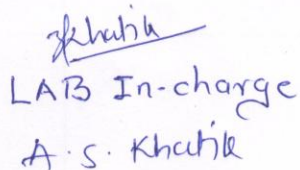 Khatik
LAB In-charge
A. S. Khatik